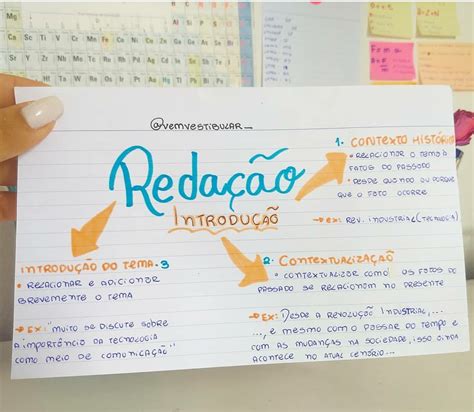 @vemvestibular_
Redação
Introdução
1. Contexto Histór
• Relacionar o tema à
fatos do passado
• Desde quando ou porque
que o fato ocorre
→ Ex: Rev. Industrial (Tecnologia)
2. Contextualização
• Contextualizar como os fatos do
passado se relacionam no presente
→ Ex: Desde a Revolução Industrial,...
..., e mesmo com o passar do tempo e
com as mudanças na sociedade, isso ainda
acontece no atual cenário...
Introdução do tema - 3
• Relacionar e adicionar
brevemente o tema
→ Ex: "muito se discute sobre
a importância da tecnologia
como meio de comunicação"